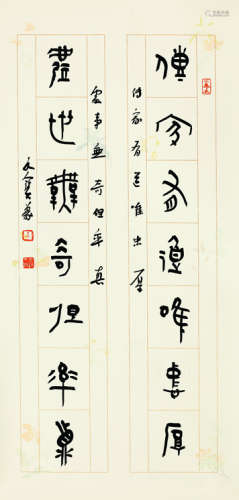 傳家有道唯忠厚
傳家有道唯忠厚
處事無奇但率真
處世無奇但率真